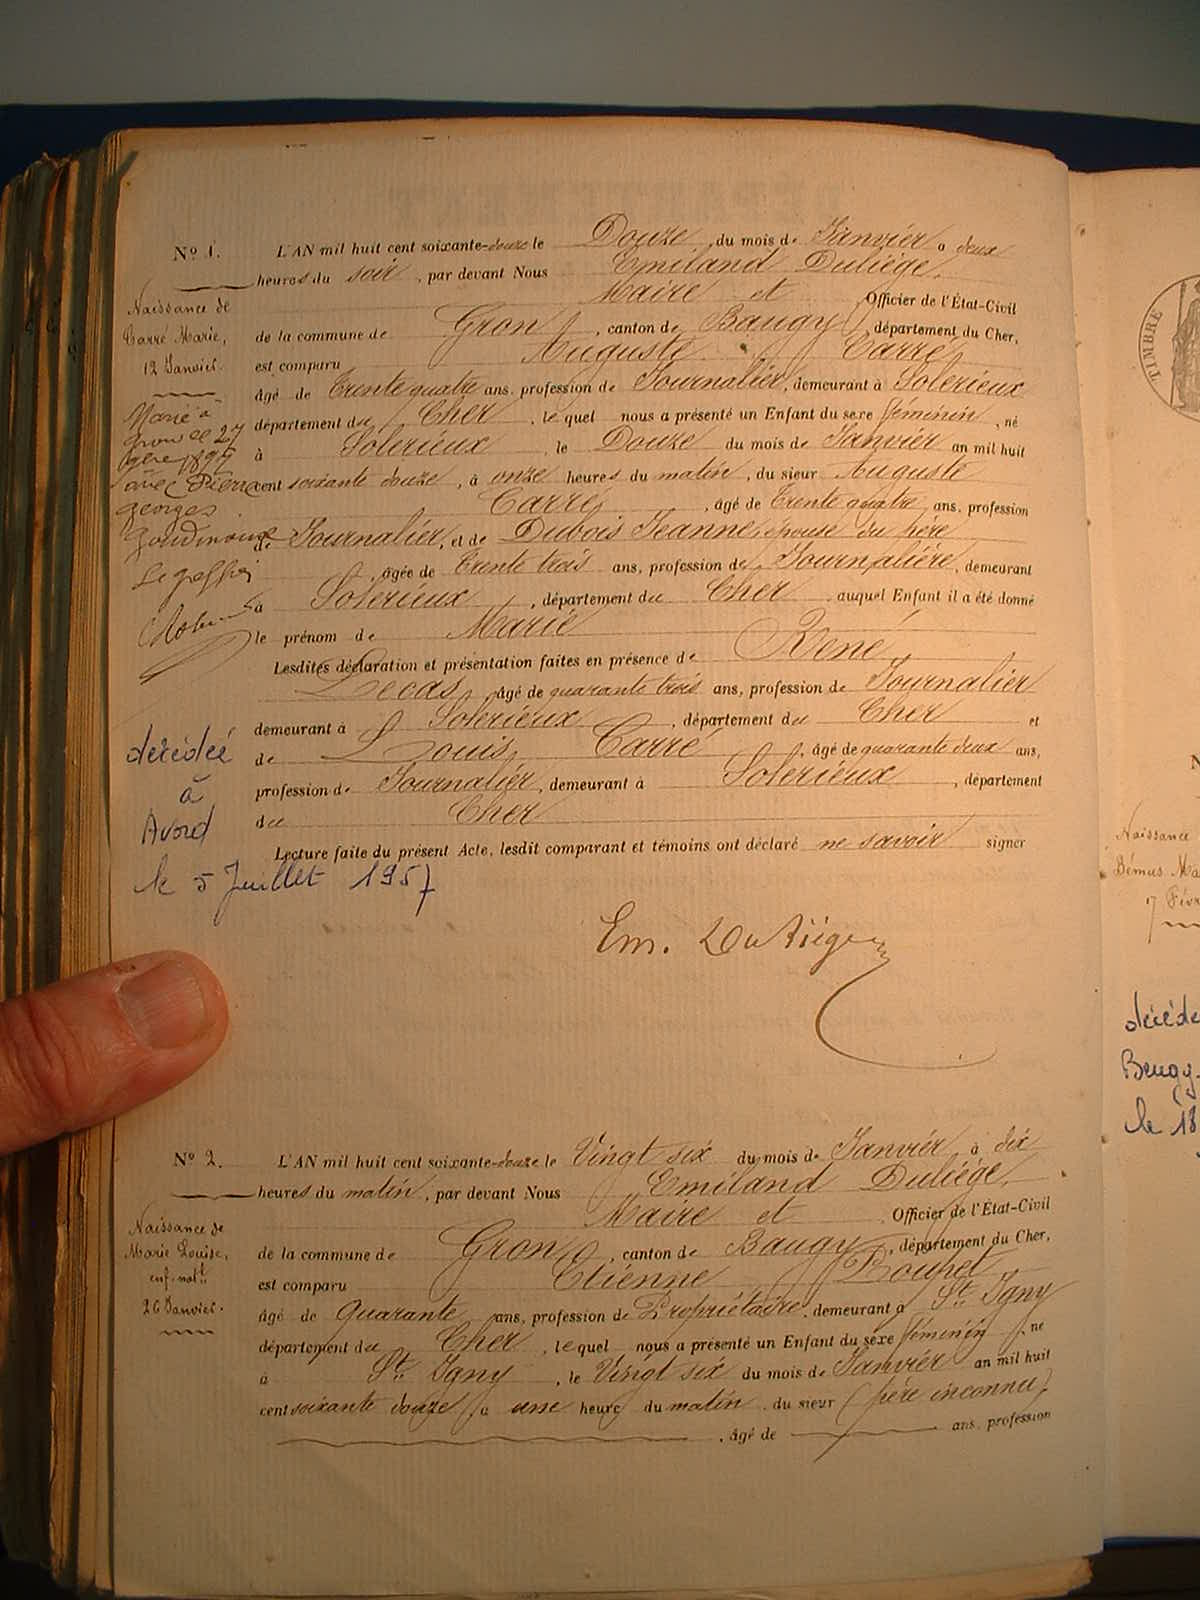 N° 1. L'AN mil huit cent soixante-douze le Douze du mois de Janvier à deux
heures du soir, par devant Nous Emiland Duliége,
Maire et Officier de l'État-Civil
de la commune de Gron, canton de Baugy, département du Cher,
est comparu Auguste Carré
âgé de Trente quatre ans, profession de Journalier, demeurant à Solerieux
département du Cher, lequel nous a présenté un Enfant du sexe féminin, né
à Solerieux, le Douze du mois de Janvier an mil huit
cent soixante douze, à onze heures du matin, du sieur Auguste
Carré, âgé de Trente quatre ans, profession
de Journalier, et de Dubois Jeanne, épouse du père
, âgée de Trente trois ans, profession de Journalière, demeurant
à Solerieux, département du Cher, auquel Enfant il a été donné
le prénom de Marie
Lesdites déclaration et présentation faites en présence de René
Lecas, âgé de quarante trois ans, profession de Journalier
demeurant à Solerieux, département du Cher et
de Louis Carré, âgé de quarante deux ans,
profession de Journalier, demeurant à Solerieux, département
du Cher
Lecture faite du présent Acte, lesdit comparant et témoins ont déclaré ne savoir signer
Em. Duliége
Naissance de
Carré Marie,
12 Janvier.
Marié à
Gron le 27
1897
avec Pierre
Georges
Le greffier
décédée
à
Avord
le 5 Juillet 1957
N° 2. L'AN mil huit cent soixante-douze le Vingt six du mois de Janvier à dix
heures du matin, par devant Nous Emiland Duliége,
Maire et Officier de l'État-Civil
de la commune de Gron, canton de Baugy, département du Cher,
est comparu Etienne Boupet
âgé de Quarante ans, profession de Propriétaire, demeurant à St. Igny
département du Cher, lequel nous a présenté un Enfant du sexe féminin, né
à St. Igny, le Vingt six du mois de Janvier an mil huit
cent soixante douze, à une heure du matin, du sieur (père inconnu)
, âgé de ans, profession
Naissance de
Marie Louise,
enf. natlle
26 Janvier.
TIMBRE
N
Naissance
Bémus Ma
17 Févr
décéde
Beugy
le 18